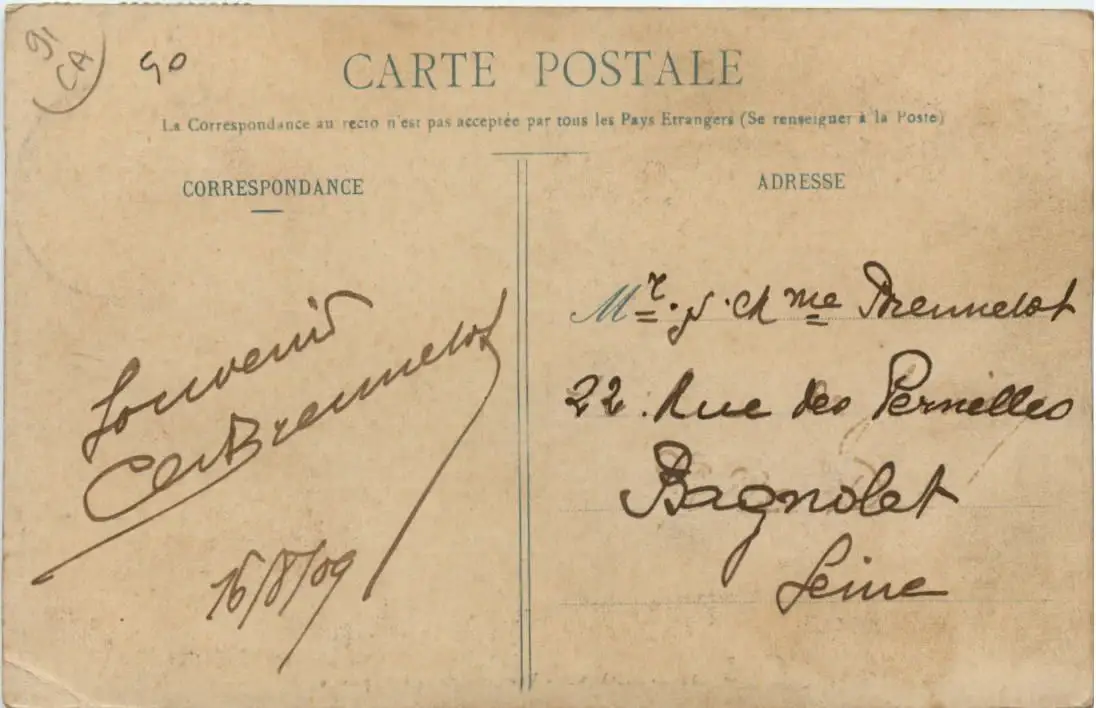 91
CA
90
CARTE POSTALE
La Correspondance au recto n'est pas acceptée par tous les Pays Etrangers (Se renseigner à la Poste)
CORRESPONDANCE
Souvenir
Brennelot
16/8/09
ADRESSE
Mr. Mme Brennelot
22. Rue des Pernelles
Bagnolet
Seine